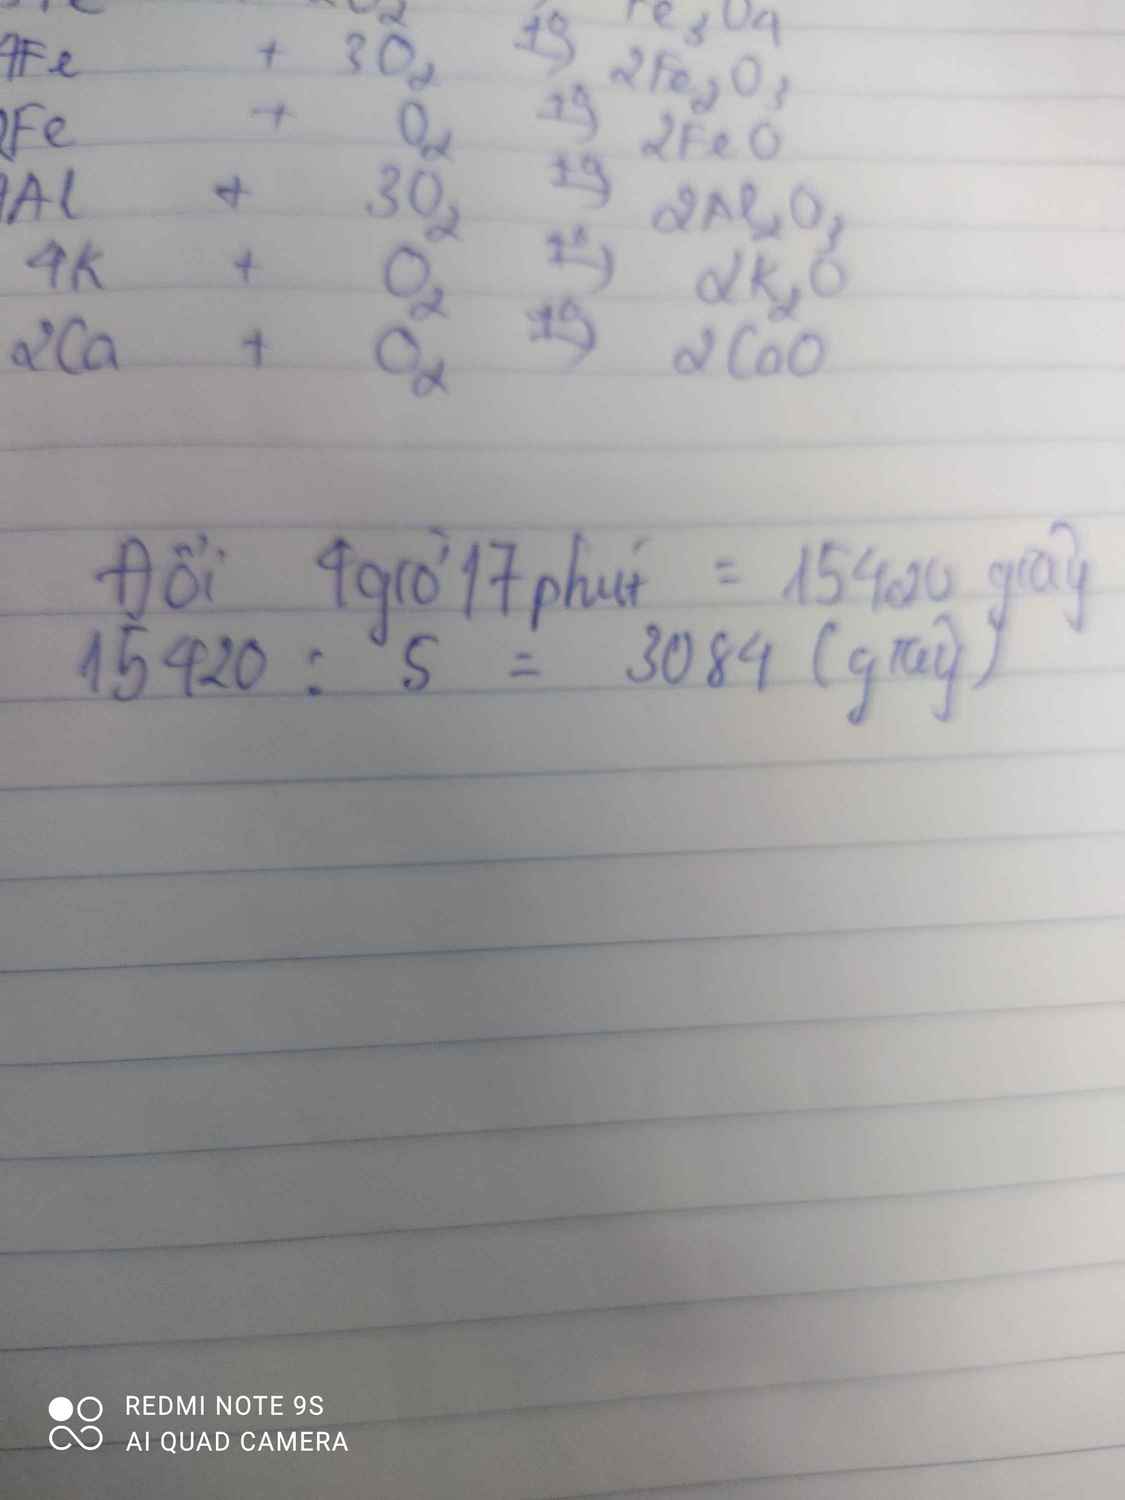 O₂ t° Fe₃O₄
4Fe + 3O₂ t° → 2Fe₂O₃
2Fe + O₂ t° → 2FeO
4Al + 3O₂ t° → 2Al₂O₃
4K + O₂ t° → 2K₂O
2Ca + O₂ t° → 2CaO
Đổi 4giờ 17 phút = 15420 giây
15420 : 5 = 3084 (giây)
REDMI NOTE 9S
AI QUAD CAMERA